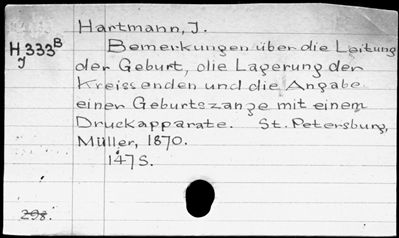 Hartmann, J.
H333B
J
Bemerkungen über die Leitung
der Geburt, die Lagerung der
Kreissenden und die Angabe
einer Geburtszange mit einem
Druckapparate. St. Petersburg,
Müller, 1870.
147S.
298.